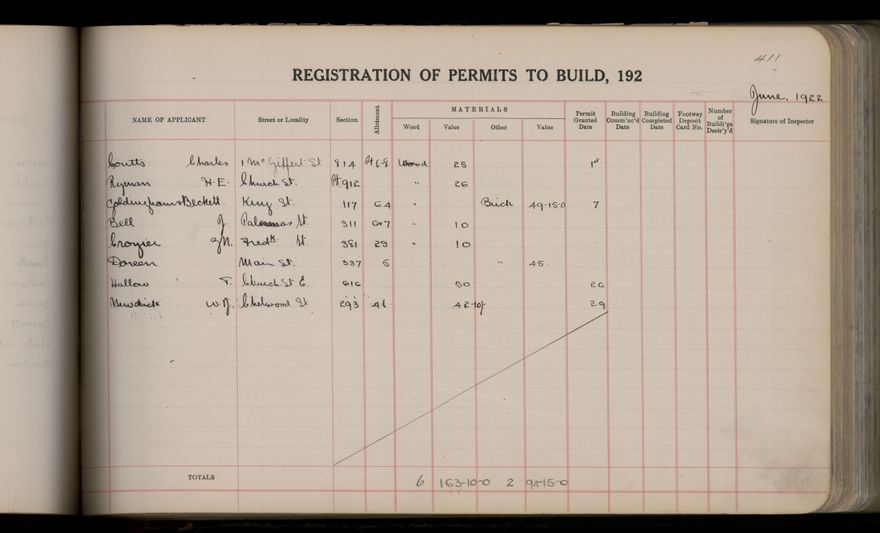 411
REGISTRATION OF PERMITS TO BUILD, 192
June, 1922
NAME OF APPLICANT Street or Locality Section Allotment MATERIALS Wood Value Other Value Permit Granted Date Building Comm'nc'd Date Building Completed Date Footway Deposit Card No. Number of Buildi'gs Destr'y'd Signature of Inspector
Coutts Charles McGiffert St 814 Wood 25 1st
Ryman H.E. Church St. Pt 912 " 26
Goldingham & Beckett King St. 117 64 " Brick 49-15-0 7
Bell J. St. 311 " 10
Crozier Fredk St. 381 29 " 10
Doreen Main St. 337 5 " 45
Hallow T. Church St E. 616 50 26
Newdick W.J. Chelwood St 293 41 42-10/- 29
TOTALS 6 163-10-0 2 94-15-0